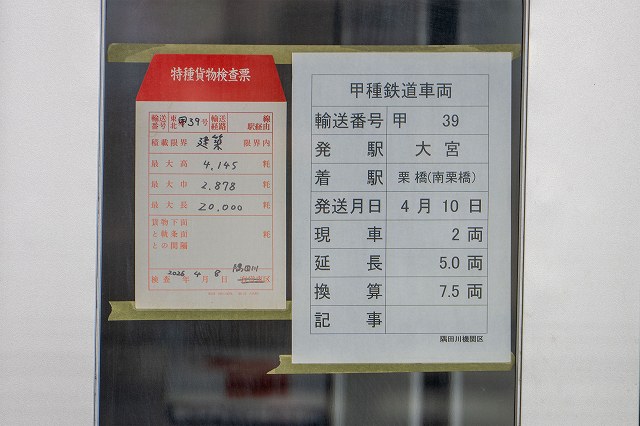 特種貨物検査票
輸送番号 東北 甲39号 輸送経路 線駅経由
積載限界 建築 限界内
最大高 4,145 粍
最大巾 2,878 粍
最大長 20,000 粍
貨物下面
と軌条面 粍
との間隔
検査 2026年4月8日 隅田川 区
甲種鉄道車両
輸送番号 甲 39
発駅 大宮
着駅 栗橋(南栗橋)
発送月日 4月10日
現車 2両
延長 5.0両
換算 7.5両
記事
隅田川機関区